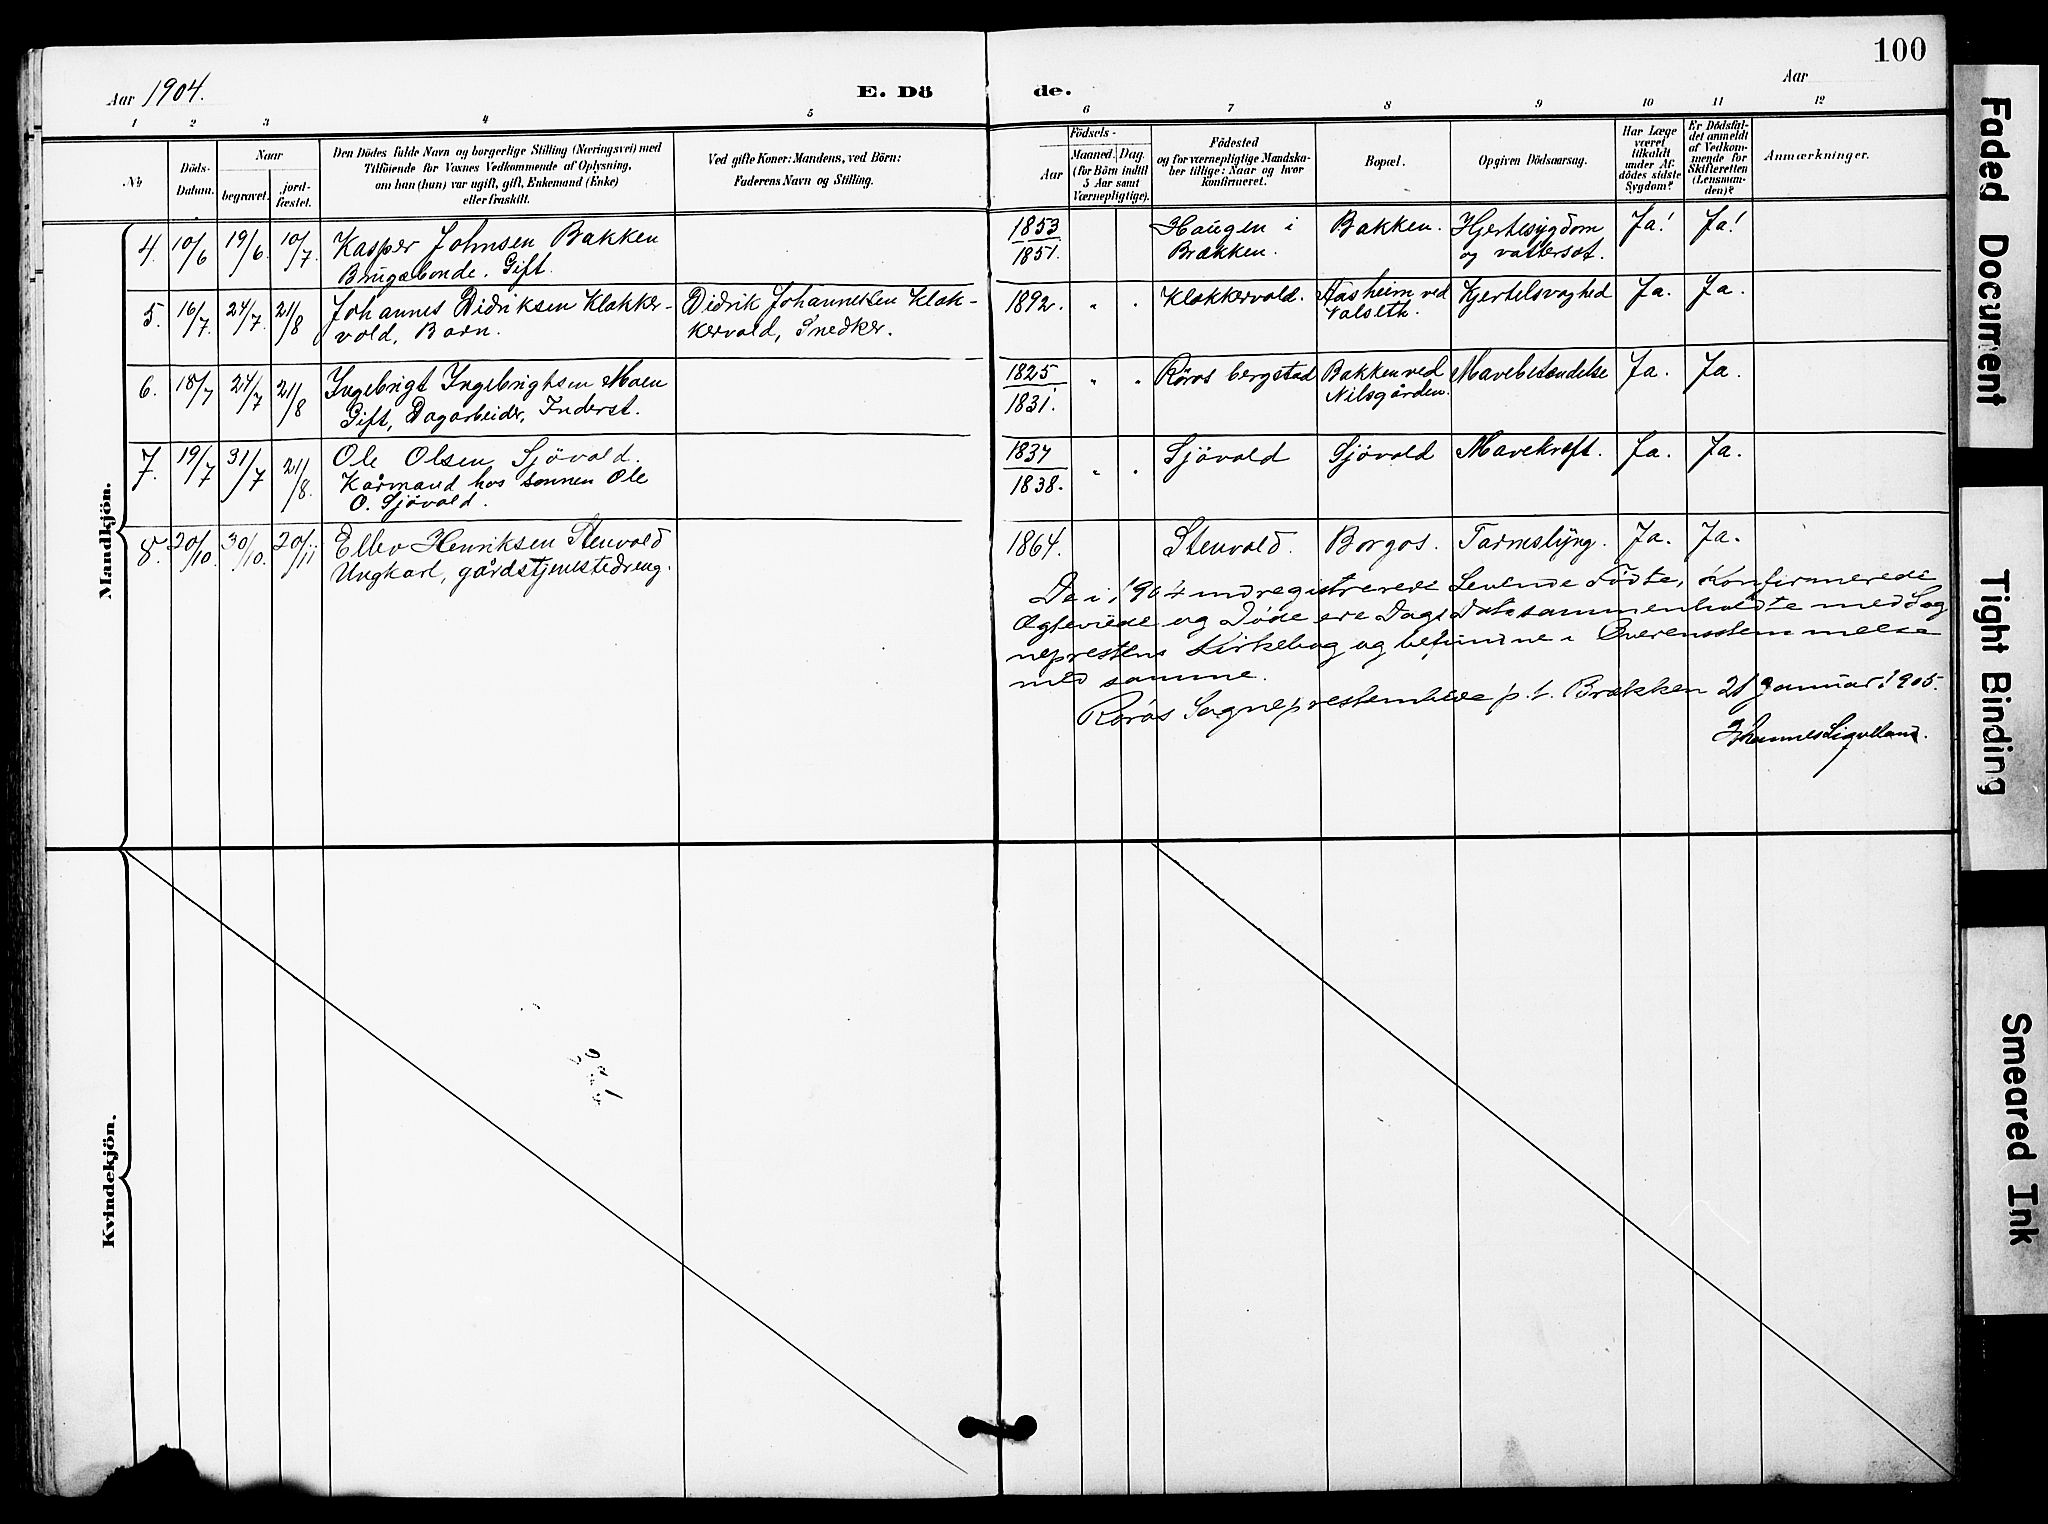 100
Aar 1904.
E. Dö
de.
Aar
1 2 3 4 5
6 7 8 9 10 11 12
№
Döds-
Datum.
Naar
begravet.
jord-
fæstet.
Den Dödes fulde Navn og borgerlige Stilling (Næringsvei) med
Tilföiende for Voxnes Vedkommende af Oplysning,
om han (hun) var ugift, gift, Enkemand (Enke)
eller fraskilt.
Ved gifte Koner: Mandens, ved Börn:
Faderens Navn og Stilling.
Födsels-
Aar
Maaned. Dag.
(for Börn indtil
5 Aar samt
Værnepligtige).
Födested
og for værnepligtige Mandska-
ber tillige: Naar og hvor
konfirmeret.
Bopæl.
Opgiven Dödsaarsag.
Har Læge
været
tilkaldt
under Af-
dödes sidste
Sygdom?
Er Dödsfal-
det anmeldt
af Vedkom-
mende for
Skifteretten
(Lensman-
den)?
Anmærkninger.
Mandkjön.
4. 10/6 19/6. 10/7. Kasper Johnsen Bakken
Brugsbonde. Gift.
1853
1851. Haugen i
Brækken. Bakken. Hjertesygdom
og vattersot. Ja! Ja!
5. 16/7. 24/7. 21/8 Johannes Didriksen Klokker-
vold, Barn.
Didrik Johannessen Klok-
kervold, Snedker.
1892. " " Klokkervold. Aasheim ved
Valseth. Kjertelsvaghed Ja. Ja.
6. 18/7 24/7 21/8 Ingebrigt Ingebrigtsen Moen
Gift, Dagarbeider, Inderst.
1825
1831. " " Röros bergstad Bakken ved
Nilsgården. Mavebetændelse Ja. Ja.
7. 19/7 31/7 21/8. Ole Olsen Sjövold.
Kårmand hos sönnen Ole
O. Sjövold.
1837
1838. " " Sjövold Sjövold Mavekræft. Ja. Ja.
8. 20/10. 30/10. 20/11 Ellev Henriksen Stenvold
Ungkarl, gårdstjenestedreng.
1864. Stenvold. Borgos. Tarmslyng. Ja. Ja.
De i 1904 indregistrerede Levende Födte, Konfirmerede
Ægteviede og Døde ere Dags Dato sammenholdte med Sog
neprestens Kirkebog og befundne i Overensstemmelse
med samme.
Rørøs Sogneprestembede p. t. Brækken 21 Januar 1905.
Kvindekjön.
Faded Document
Tight Binding
Smeared Ink